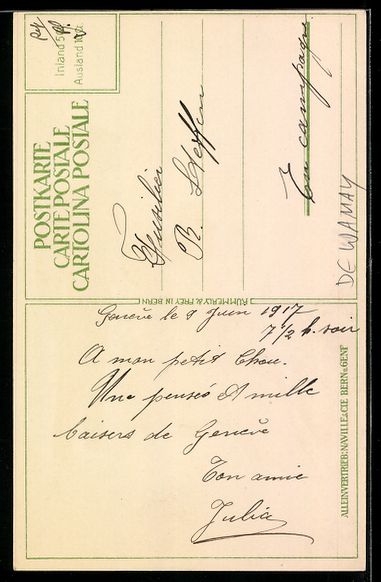 POSTKARTE
CARTE POSTALE
CARTOLINA POSTALE
Inland 5
Ausland 10
Fusilier
B. Steffen
En campagne
DE WAMAY
KÜMMERLY & FREY IN BERN
Genève le 9 Juin 1917
7 1/2 h. soir
A mon petit Chou.
Une pensée & mille
baisers de Genève
Ton amie
Julia
ALLEINVERTRIEB: NAVILLE & CIE BERN & GENF